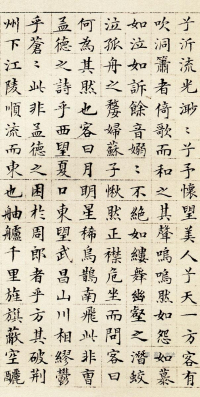 兮泝流光渺〻兮予懷望美人兮天一方客有
吹洞簫者倚歌而和之其聲嗚嗚然如怨如慕
如泣如訴餘音嫋〻不絕如縷舞幽壑之潛蛟
泣孤舟之嫠婦蘇子愀然正襟危坐而問客曰
何為其然也客曰月明星稀烏鵲南飛此非曹
孟德之詩乎西望夏口東望武昌山川相繆鬱
乎蒼〻此非孟德之困於周郎者乎方其破荊
州下江陵順流而東也舳艫千里旌旗蔽空釃